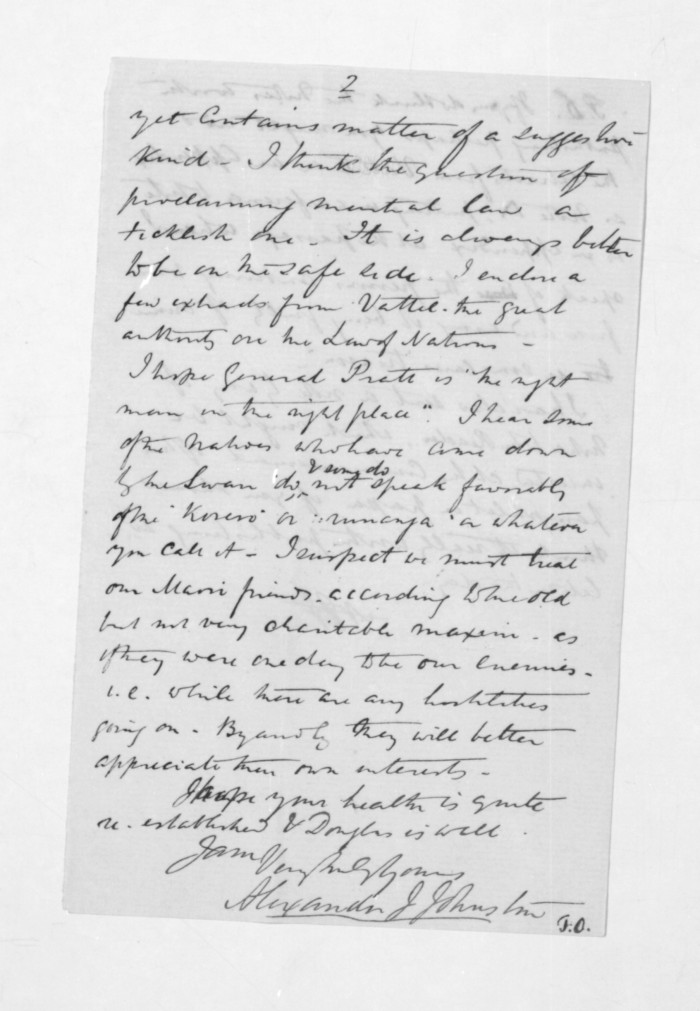 2
yet Contains matter of a suggestive
kind - I think the question of
proclaiming martial law a
ticklish one - It is always better
to be on the safe side. I enclose a
few extracts from Vattel - the great
authority on the Law of Nations -
I hope General Pratt is "the right
man in the right place". I hear some
of the Natives who have come down
& some do
by the Swan 'do, not speak favorably
of the 'Korero' or 'runanga' or whatever
you call it - I suspect we must treat
our Maori friends according to the old
but not very charitable maxim - as
if they were one day to be our enemies -
i.e. while there are any hostilities
going on - By and by they will better
appreciate their own interests -
I hope your health is quite
re-established & Douglas is well.
I am Very truly Yours
Alexander J Johnston
T.O.